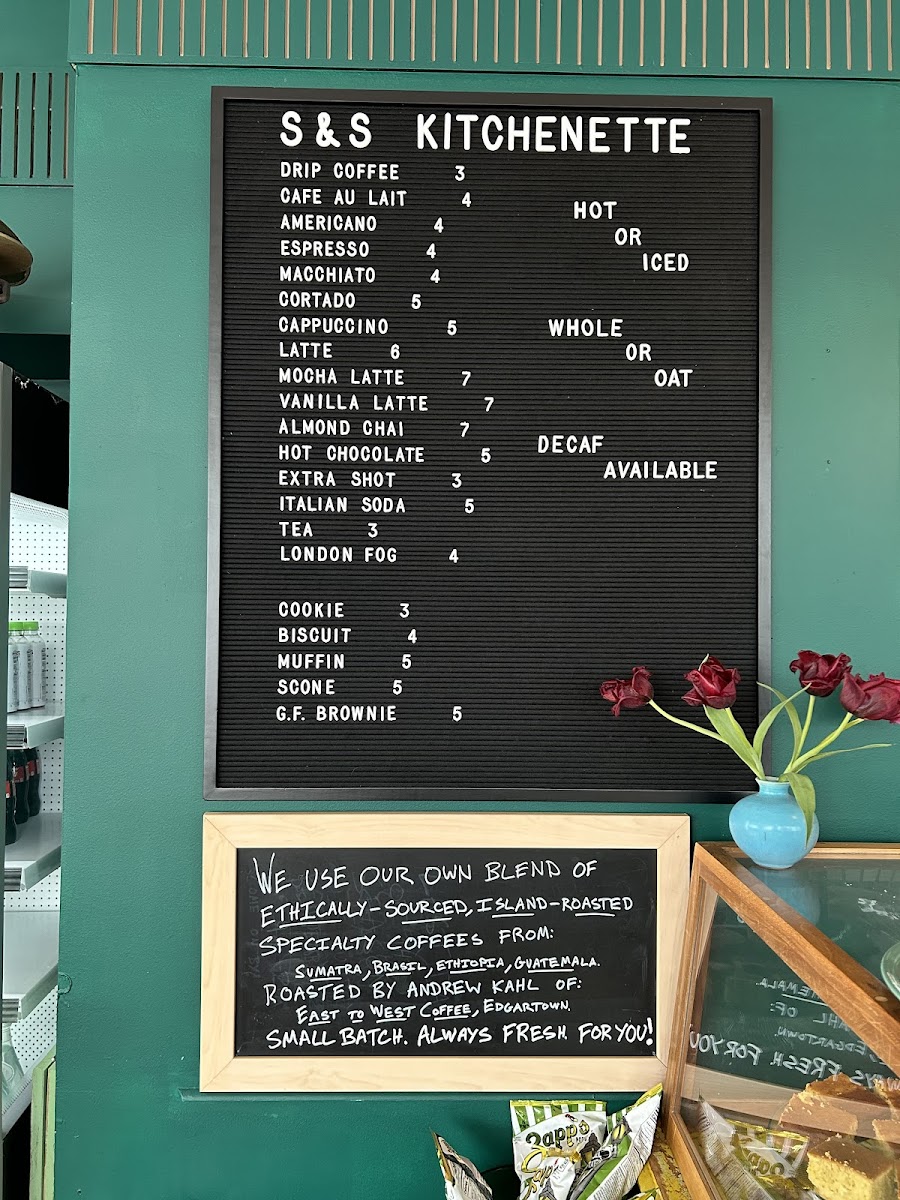 S & S KITCHENETTE
DRIP COFFEE 3
CAFE AU LAIT 4
AMERICANO 4
ESPRESSO 4
MACCHIATO 4
CORTADO 5
CAPPUCCINO 5
LATTE 6
MOCHA LATTE 7
VANILLA LATTE 7
ALMOND CHAI 7
HOT CHOCOLATE 5
EXTRA SHOT 3
ITALIAN SODA 5
TEA 3
LONDON FOG 4
COOKIE 3
BISCUIT 4
MUFFIN 5
SCONE 5
G.F. BROWNIE 5
HOT
OR
ICED
WHOLE
OR
OAT
DECAF
AVAILABLE
WE USE OUR OWN BLEND OF
ETHICALLY-SOURCED, ISLAND-ROASTED
SPECIALTY COFFEES FROM:
SUMATRA, BRASIL, ETHIOPIA, GUATEMALA.
ROASTED BY ANDREW KAHL OF:
EAST TO WEST COFFEE, EDGARTOWN.
SMALL BATCH. ALWAYS FRESH FOR YOU!
Zapp's